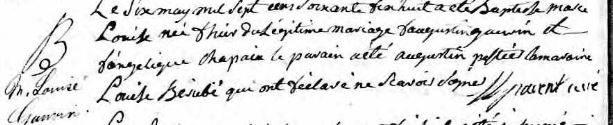 B
M. Louise
Le Six may mil sept cens soixante dix huit a été Baptisée marie
Louise née d'hier du légitime mariage d'augustin et
d'angelique chapain le parain a été augustin la maraine
Louise Berubé qui ont déclaré ne scavoir signé parent curé